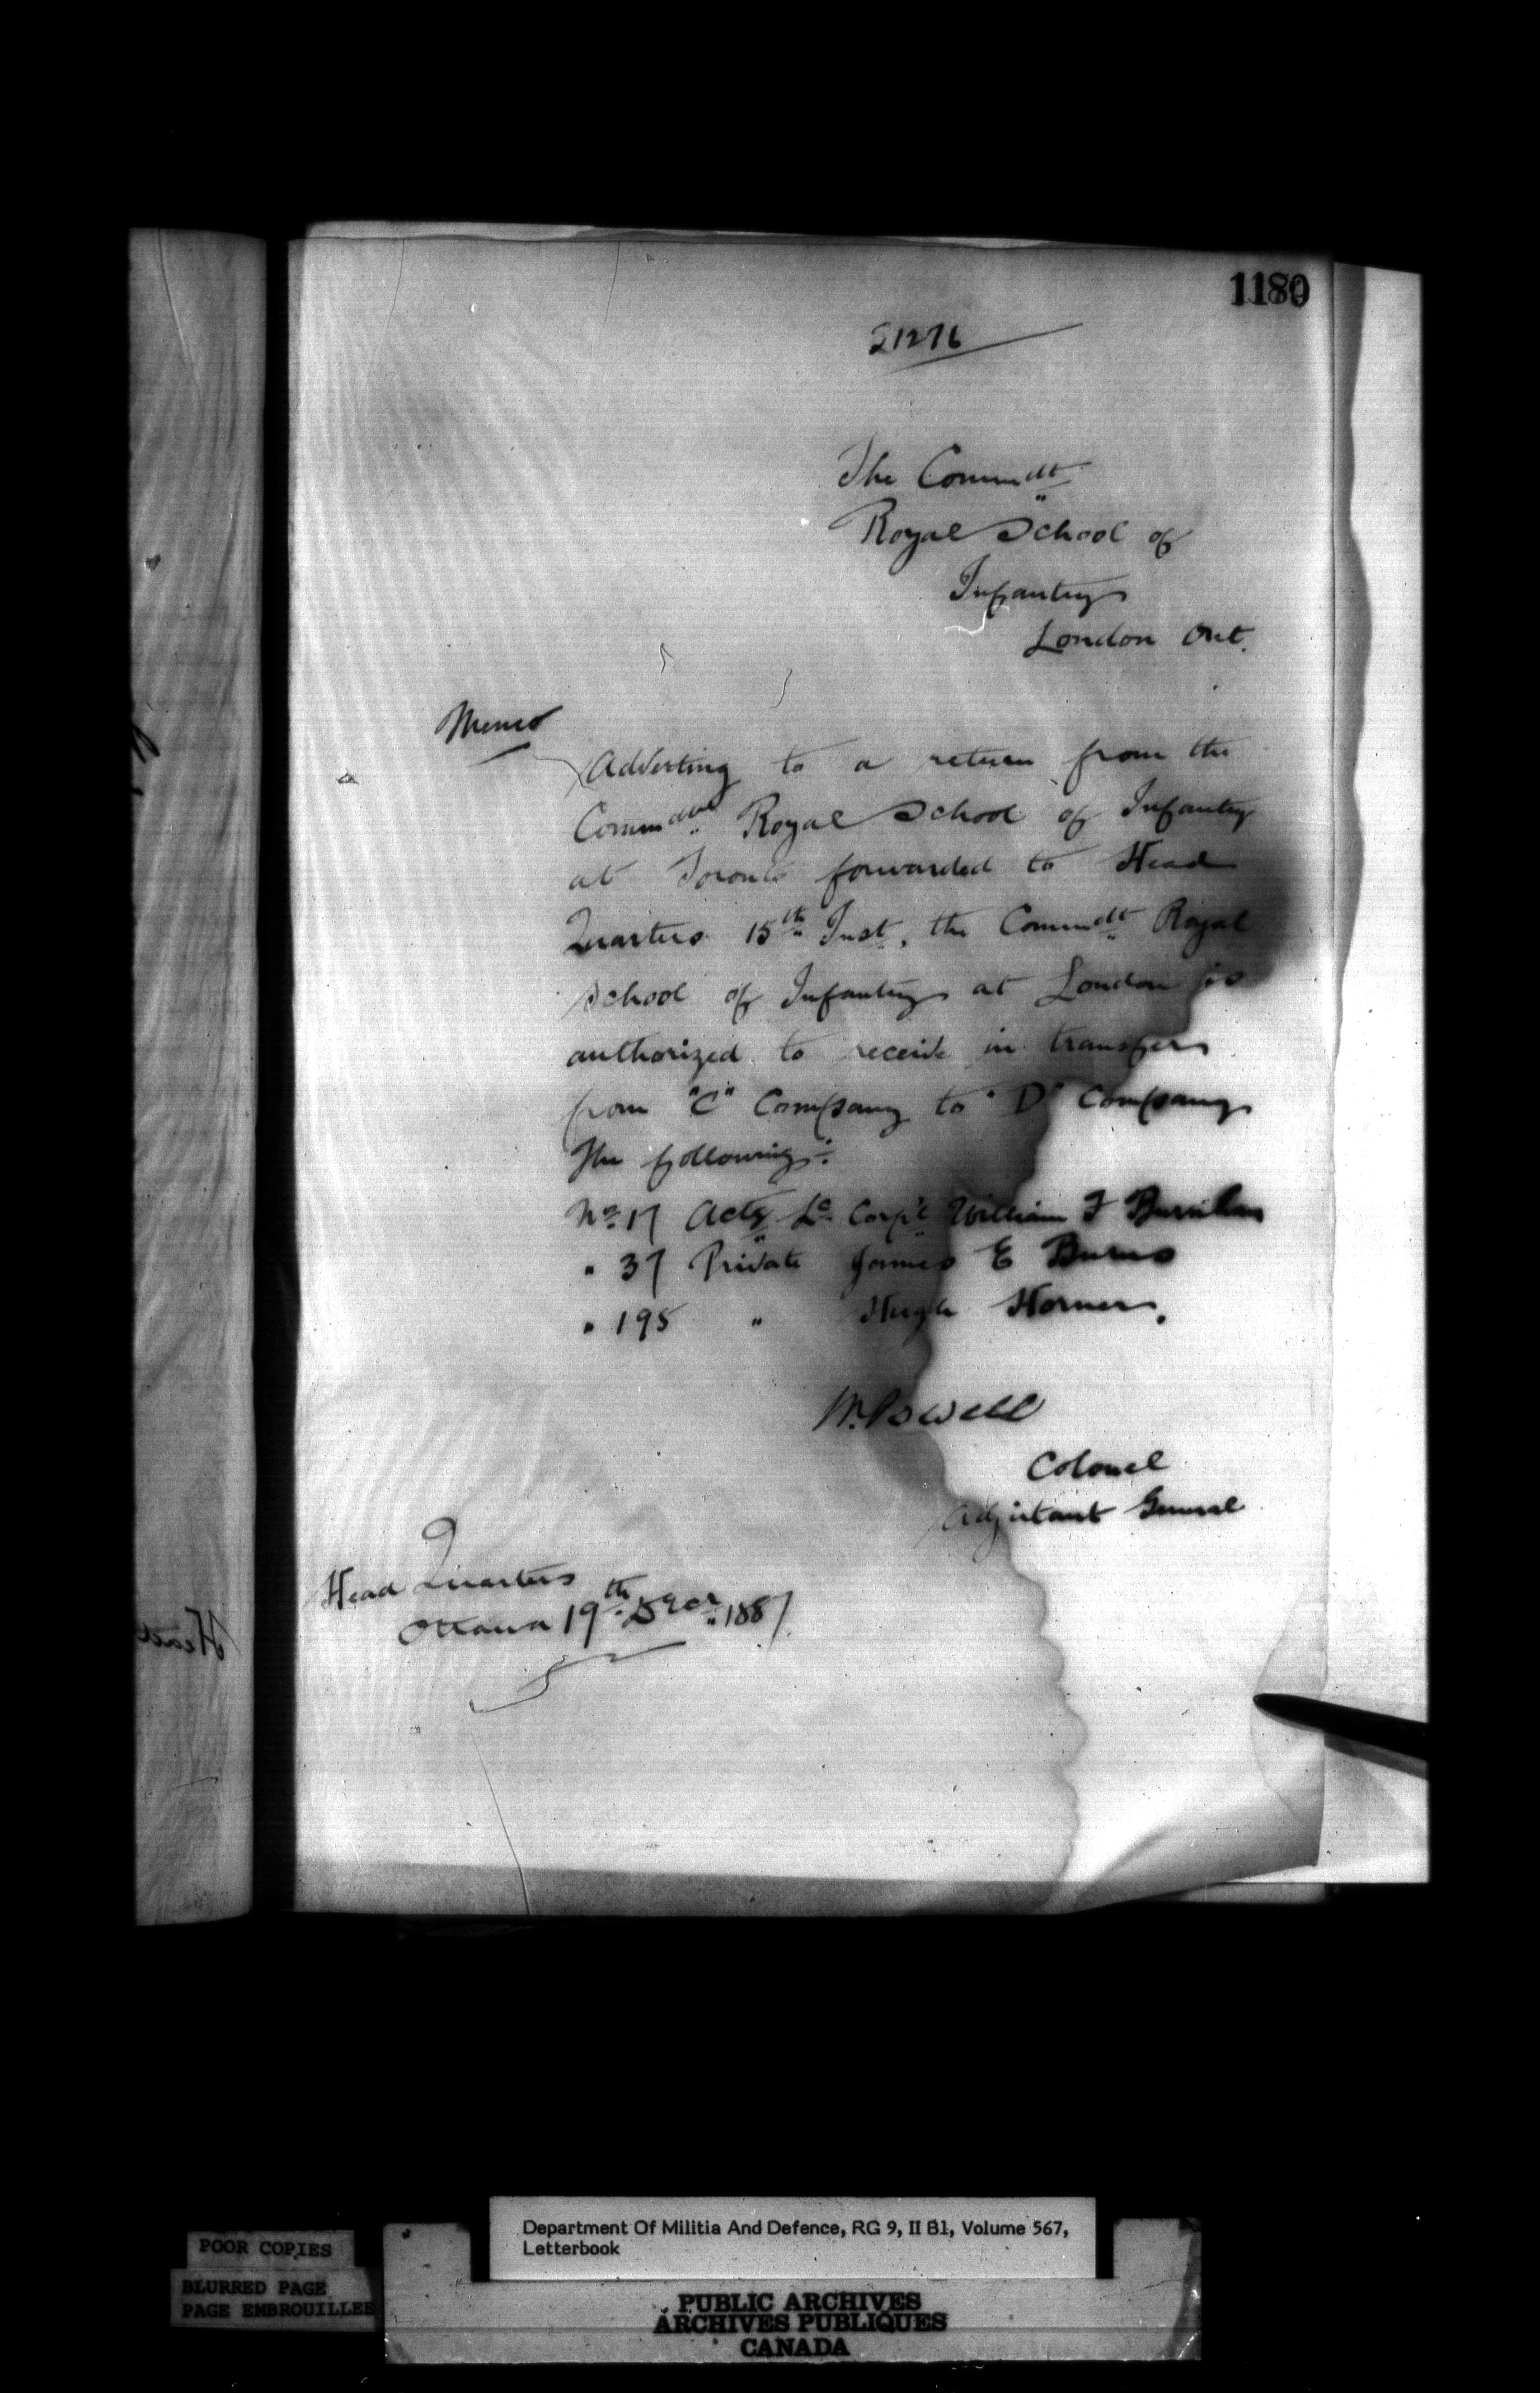 1180
51276
The Commdt
Royal School of
Infantry
London Ont.
Memo
Adverting to a return from the
Commdt Royal School of Infantry
at Toronto forwarded to Head
Quarters 15th Inst, the Commdt Royal
School of Infantry at London is
authorized to receive in transfer
from "C" Company to "D" Company
The following:
No. 17 Actg Lc Corpl William F
" 37 Private James E Burns
" 195 " Hugh Horner.
W. Powell
Colonel
Adjutant General
Head Quarters
Ottawa 19th Decr 1887.
Head
POOR COPIES
BLURRED PAGE
PAGE EMBROUILLEE
Department Of Militia And Defence, RG 9, II B1, Volume 567,
Letterbook
PUBLIC ARCHIVES
ARCHIVES PUBLIQUES
CANADA